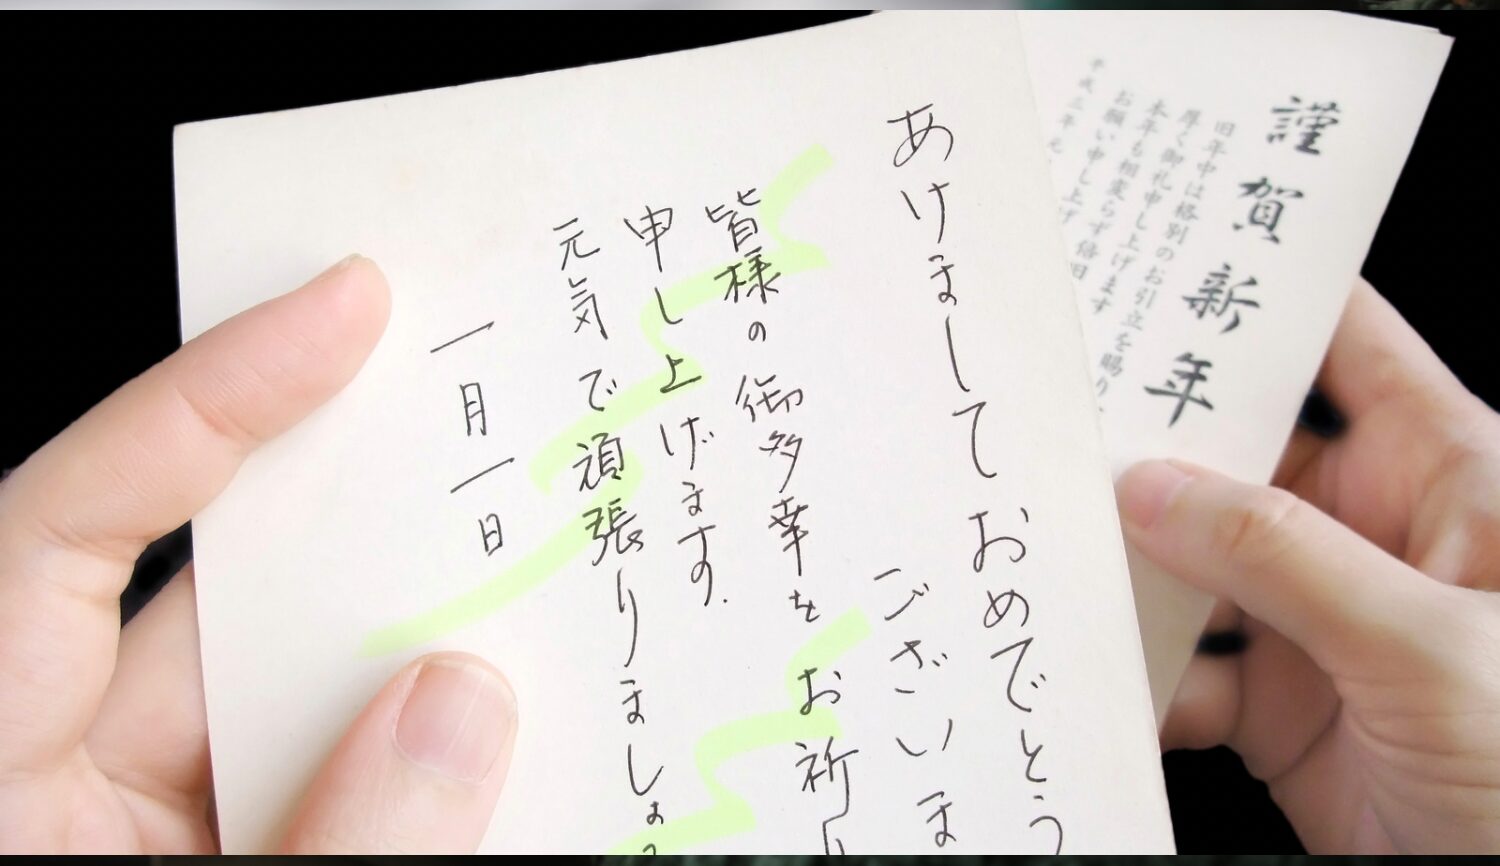 謹賀新年
旧年中は格別のお引立を賜り、
厚く御礼申し上げます
本年も相変らず倍旧
お願い申し上げ
平成三年元
あけましておめでとう
ございま
皆様の御多幸をお祈り
申し上げます.
元気で頑張りましょう
一月一日